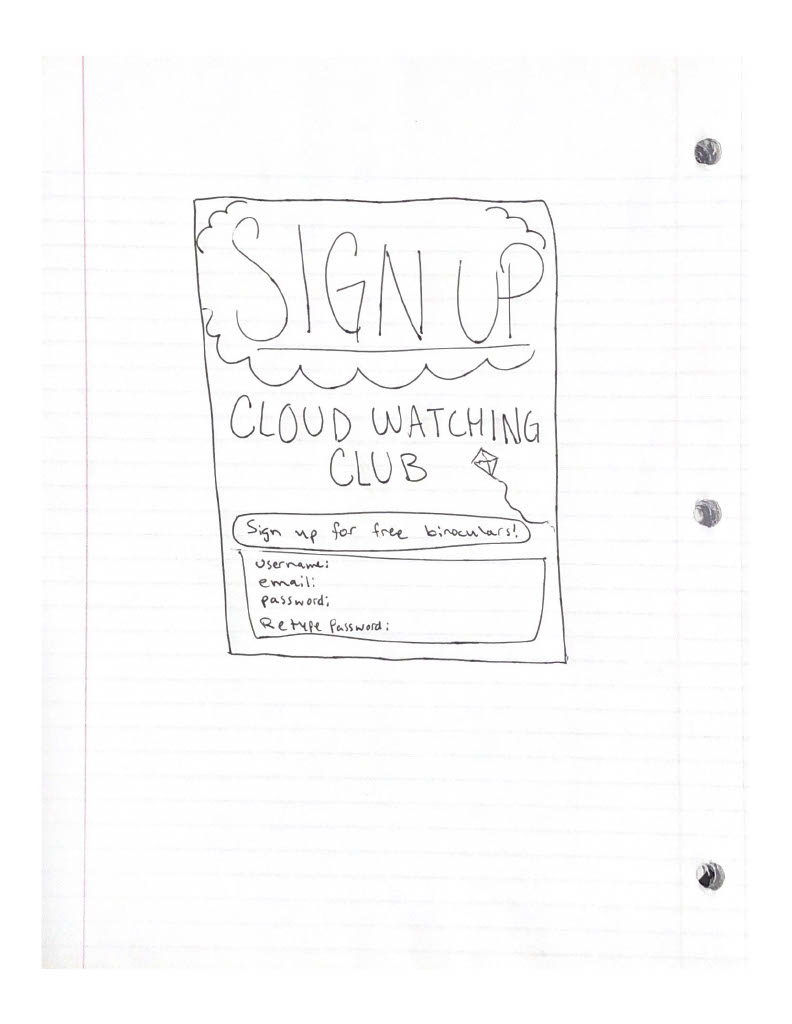 SIGN UP
CLOUD WATCHING
CLUB
Sign up for free binoculars!
username:
email:
password:
Retype Password: